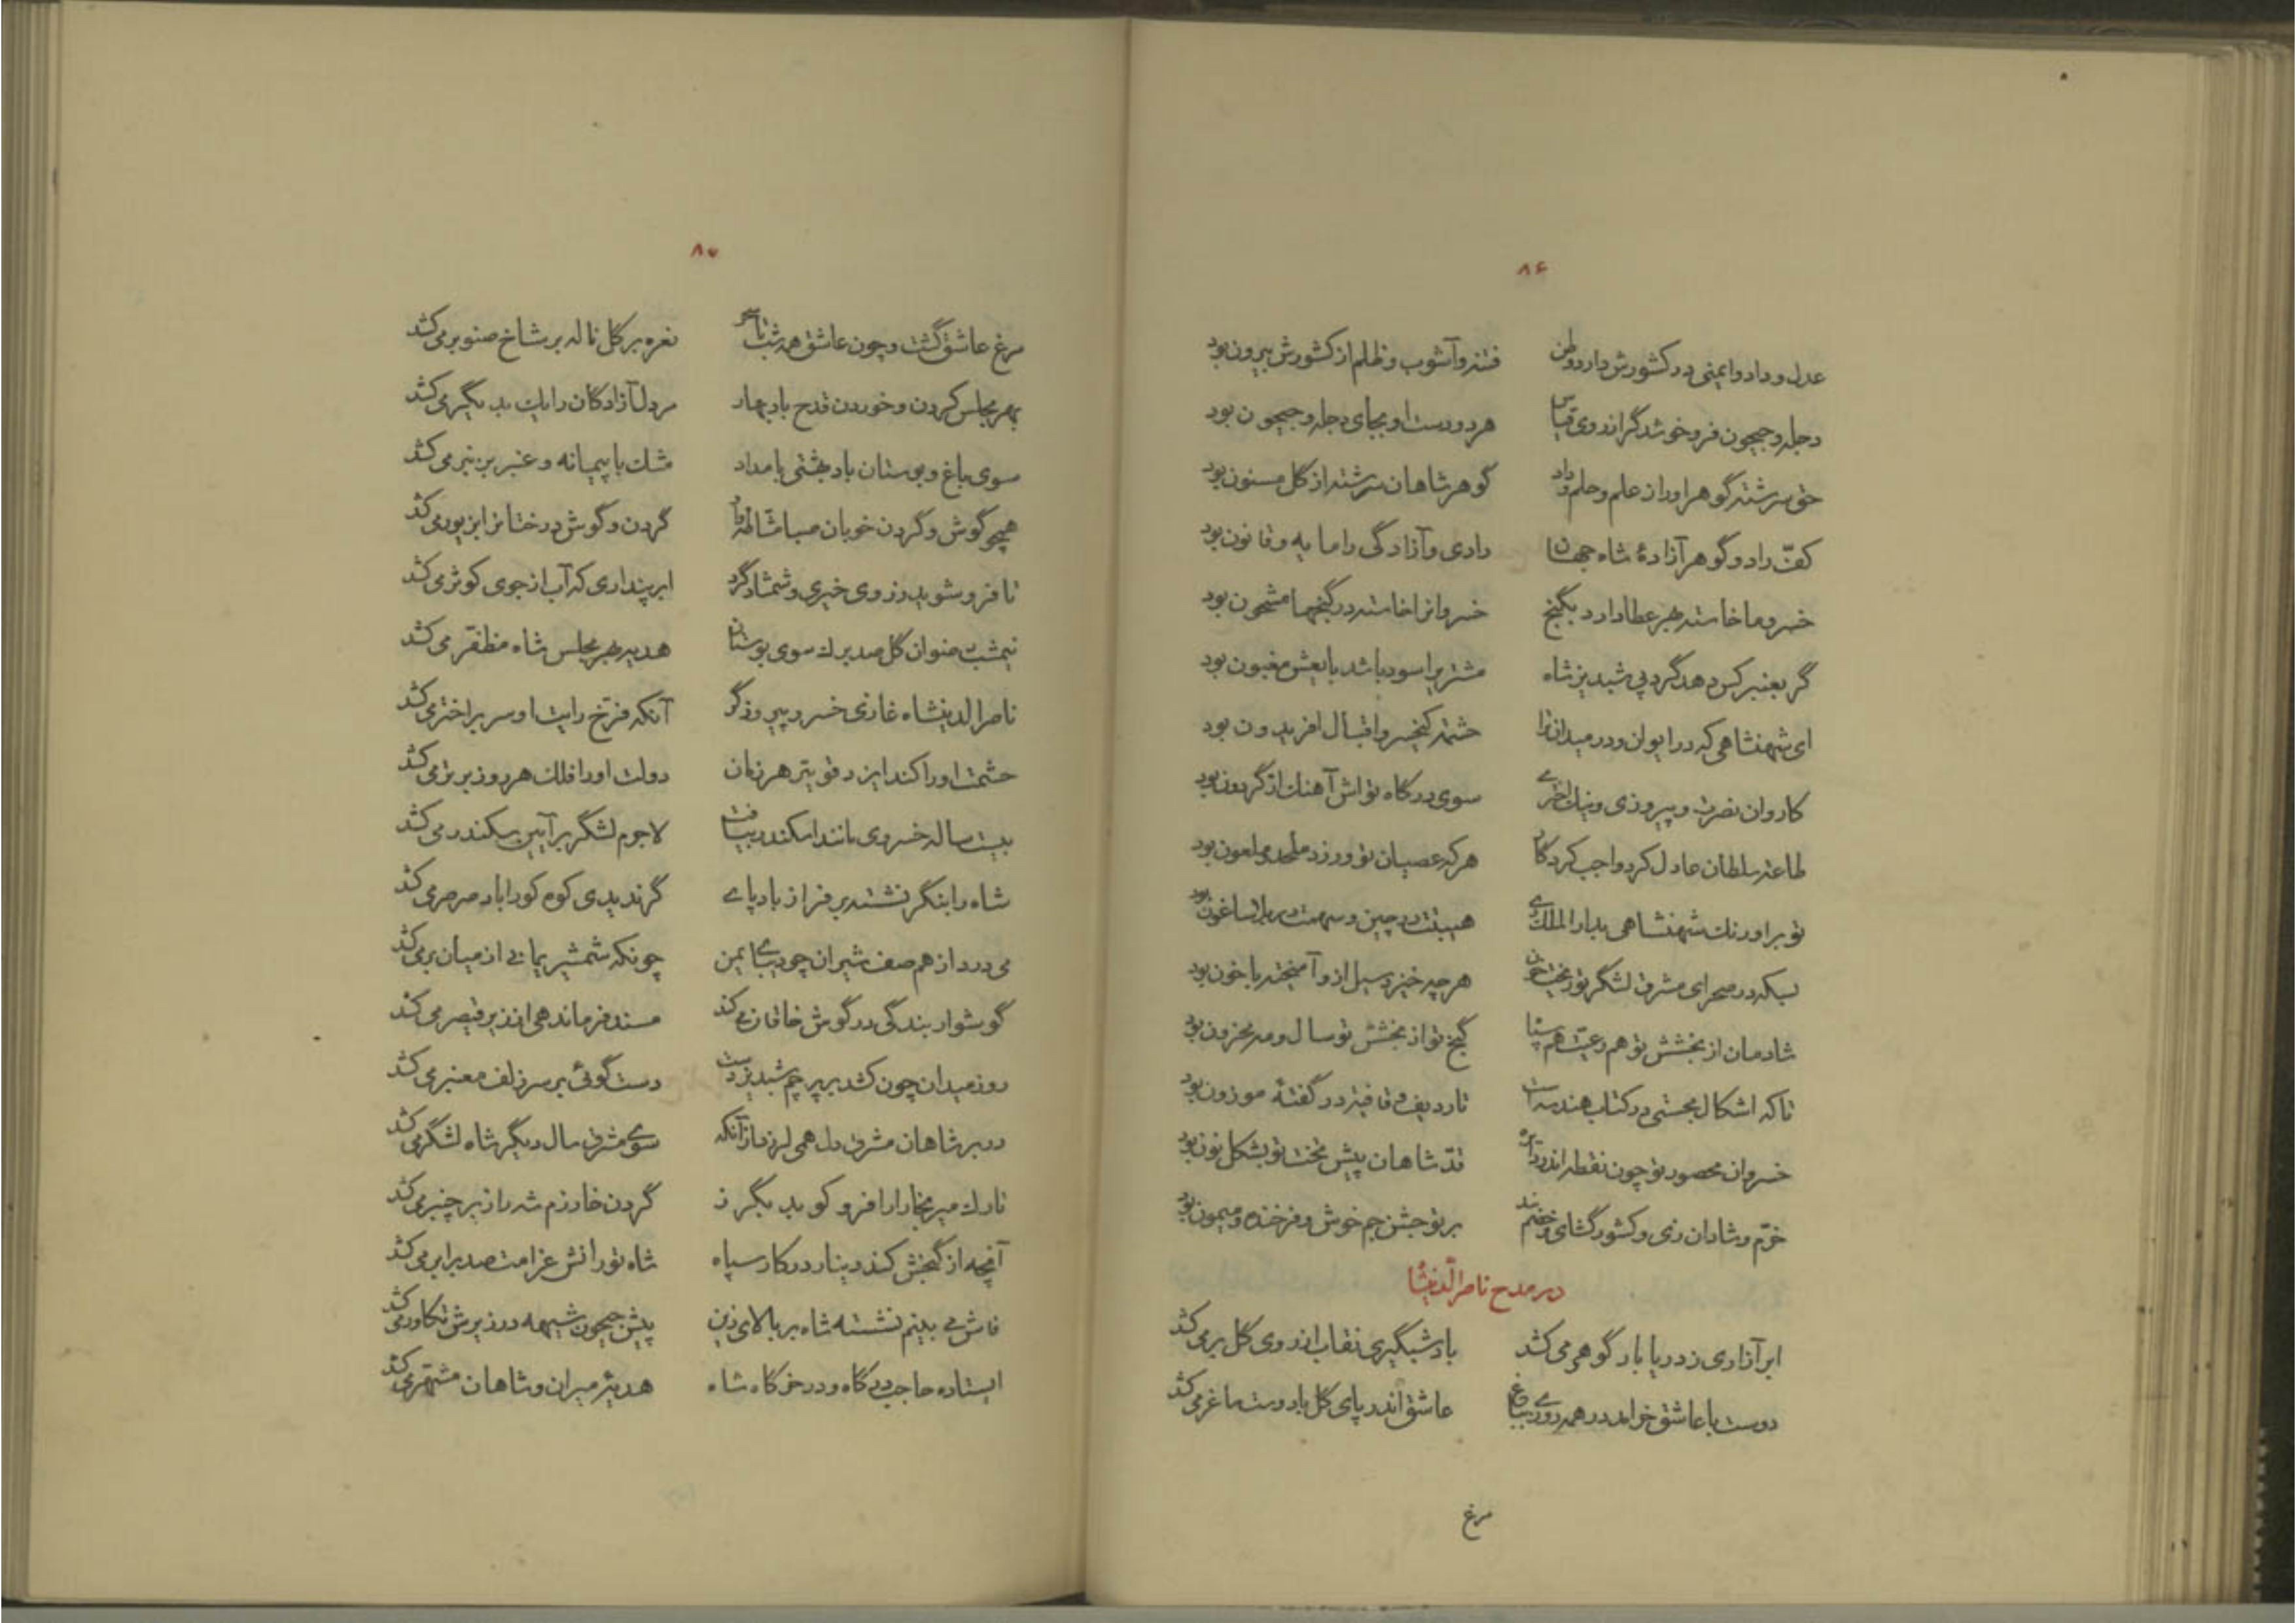 ۸۶
عدل و داد و ایمنی در کشورش دارد وطن فتنه و آشوب و ظلم از کشورش بیرون بود
دجله و جیحون فرو خوشد گر اندوی قیاس هر دو دست او بجای دجله و جیحون بود
حق سرشته گوهر او را ز علم و حلم و داد گوهر شاهان سرشته از گل مسنون بود
کفّ راد و گوهر آزادهٔ شاه جهان رادی و آزادگی را مایه و قانون بود
خسرو ما خاسته بهر عطا دارد بگنج خسروانرا خاسته در گنجها مشحون بود
گر بعنبر کس دهد گرد پی شبدیز شاه مشتریرا سود باشد بایعش مغبون بود
ای شهنشاهی که در ایوان و در میدان ترا حشمت کیخسرو اقبال افریدون بود
کاروان نصرت و پیروزی و نیک اختری سوی درگاه تواش آهنک از گردون بود
طاعت سلطان عادل کرد واجب کردگار هر که عصیان تو ورزد ملحد و ملعون بود
تو بر اورنک شهنشاهی بدار الملک ری هیبتت در چین و سهمت در بلاساغون بود
بسکه در صحرای مشرق لشگر تو ریخت خون هر چه خیزد سیل ازو آمیخته با خون بود
شادمان از بخشش تو هم رعیت هم سپاه گنج تو از بخشش تو سال و مه محزون بود
تا که اشکال مجسّی در کتاب هندسه است تا ردیف و قافیه در گفتهٔ موزون بود
خسروان محصور تو چون نقطه اندر دایره قدّ شاهان پیش تخت تو بشکل نون بود
خرّم و شادان زی و کشور گشای و خصم بند بر تو جشن جم خوش و فرخنده و میمون بود
در مدح ناصر الدینشاه
ابر آزاری ز دریا بار گوهر می کشد باد شبگیری نقاب از روی گل بر می کشد
دوست با عاشق خرامد در همه روزی بباغ عاشق اندر پای گل با دوست ساغر می کشد
مرغ
۸۷
مرغ عاشق گشت و چون عاشق همه شب تا سحر نعره بر گل ناله بر شاخ صنوبر می کشد
بهر مجلس کردن و خوردن قدح باد بهار مر دل آزادگان را یک بیک دیگر می کشد
سوی باغ و بوستان باد بهشتی بامداد مشک با پیمانه و عنبر بمنبر می کشد
همچو گوش و گردن خوبان صبا مشاطه وار گردن و گوش درختانرا بزیور می کشد
تا فرو شوید ز روی خیری و شمشاد گرد ابر پنداری که آب از جوی کوثر می کشد
نیمشب رضوان گل صد برک سوی بوستان هدیه بهر مجلس شاه مظفّر می کشد
ناصر الدینشاه غازی خسرو پیروزگر آنکه فرّخ رایت او سر بر اختر می کشد
حشمت او را کند ایزد قویتر هر زمان دولت او را فلک هر روز برتر می کشد
بیست ساله خسروی مانند اسکندر بیافت لاجرم لشگر بر آیین سکندر می کشد
شاه را بنگر نشسته بر فراز باد پای گر ندیدی کوه کو را باد صرصر می کشد
می درد از هم صف شیران چو دیبای یمن چونکه شمشیر یمانی از میان بر می کشد
گوشوار بندگی در گوش خاقان می کند مسند فرماندهی از زیر قیصر می کشد
روز میدان چون کشد بر پرچم شبدیز دست دست گوئی بر سر زلف معنبر می کشد
در بر شاهان مشرق دل همی لرزد از آنکه سوی مشرق سال دیگر شاه لشگر می کشد
تارک میر بخارا را فرو کوبد بگرز گردن خارزم شه را زیر چنبر می کشد
آنچه از گنجش کند دینار در کار سپاه شاه تورانش غرامت صد برابر می کشد
فاش می بینم نشسته شاه بر بالای زین پیش جیحون شیهه در زیرش تکاور می کشد
ایستاده حاجب درگاه و در خرگاه شاه هدیهٔ میران و شاهان مشتهر می کشد